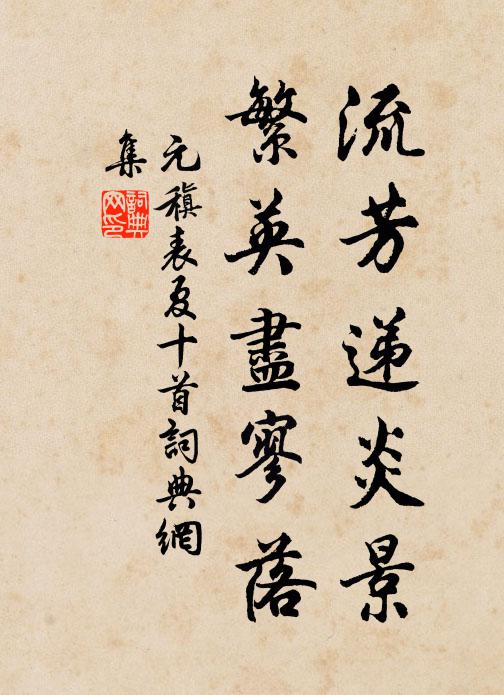 流芳递炎景
繁英盡寥落
元稹表夏十首詞典網
集
詞典
网印